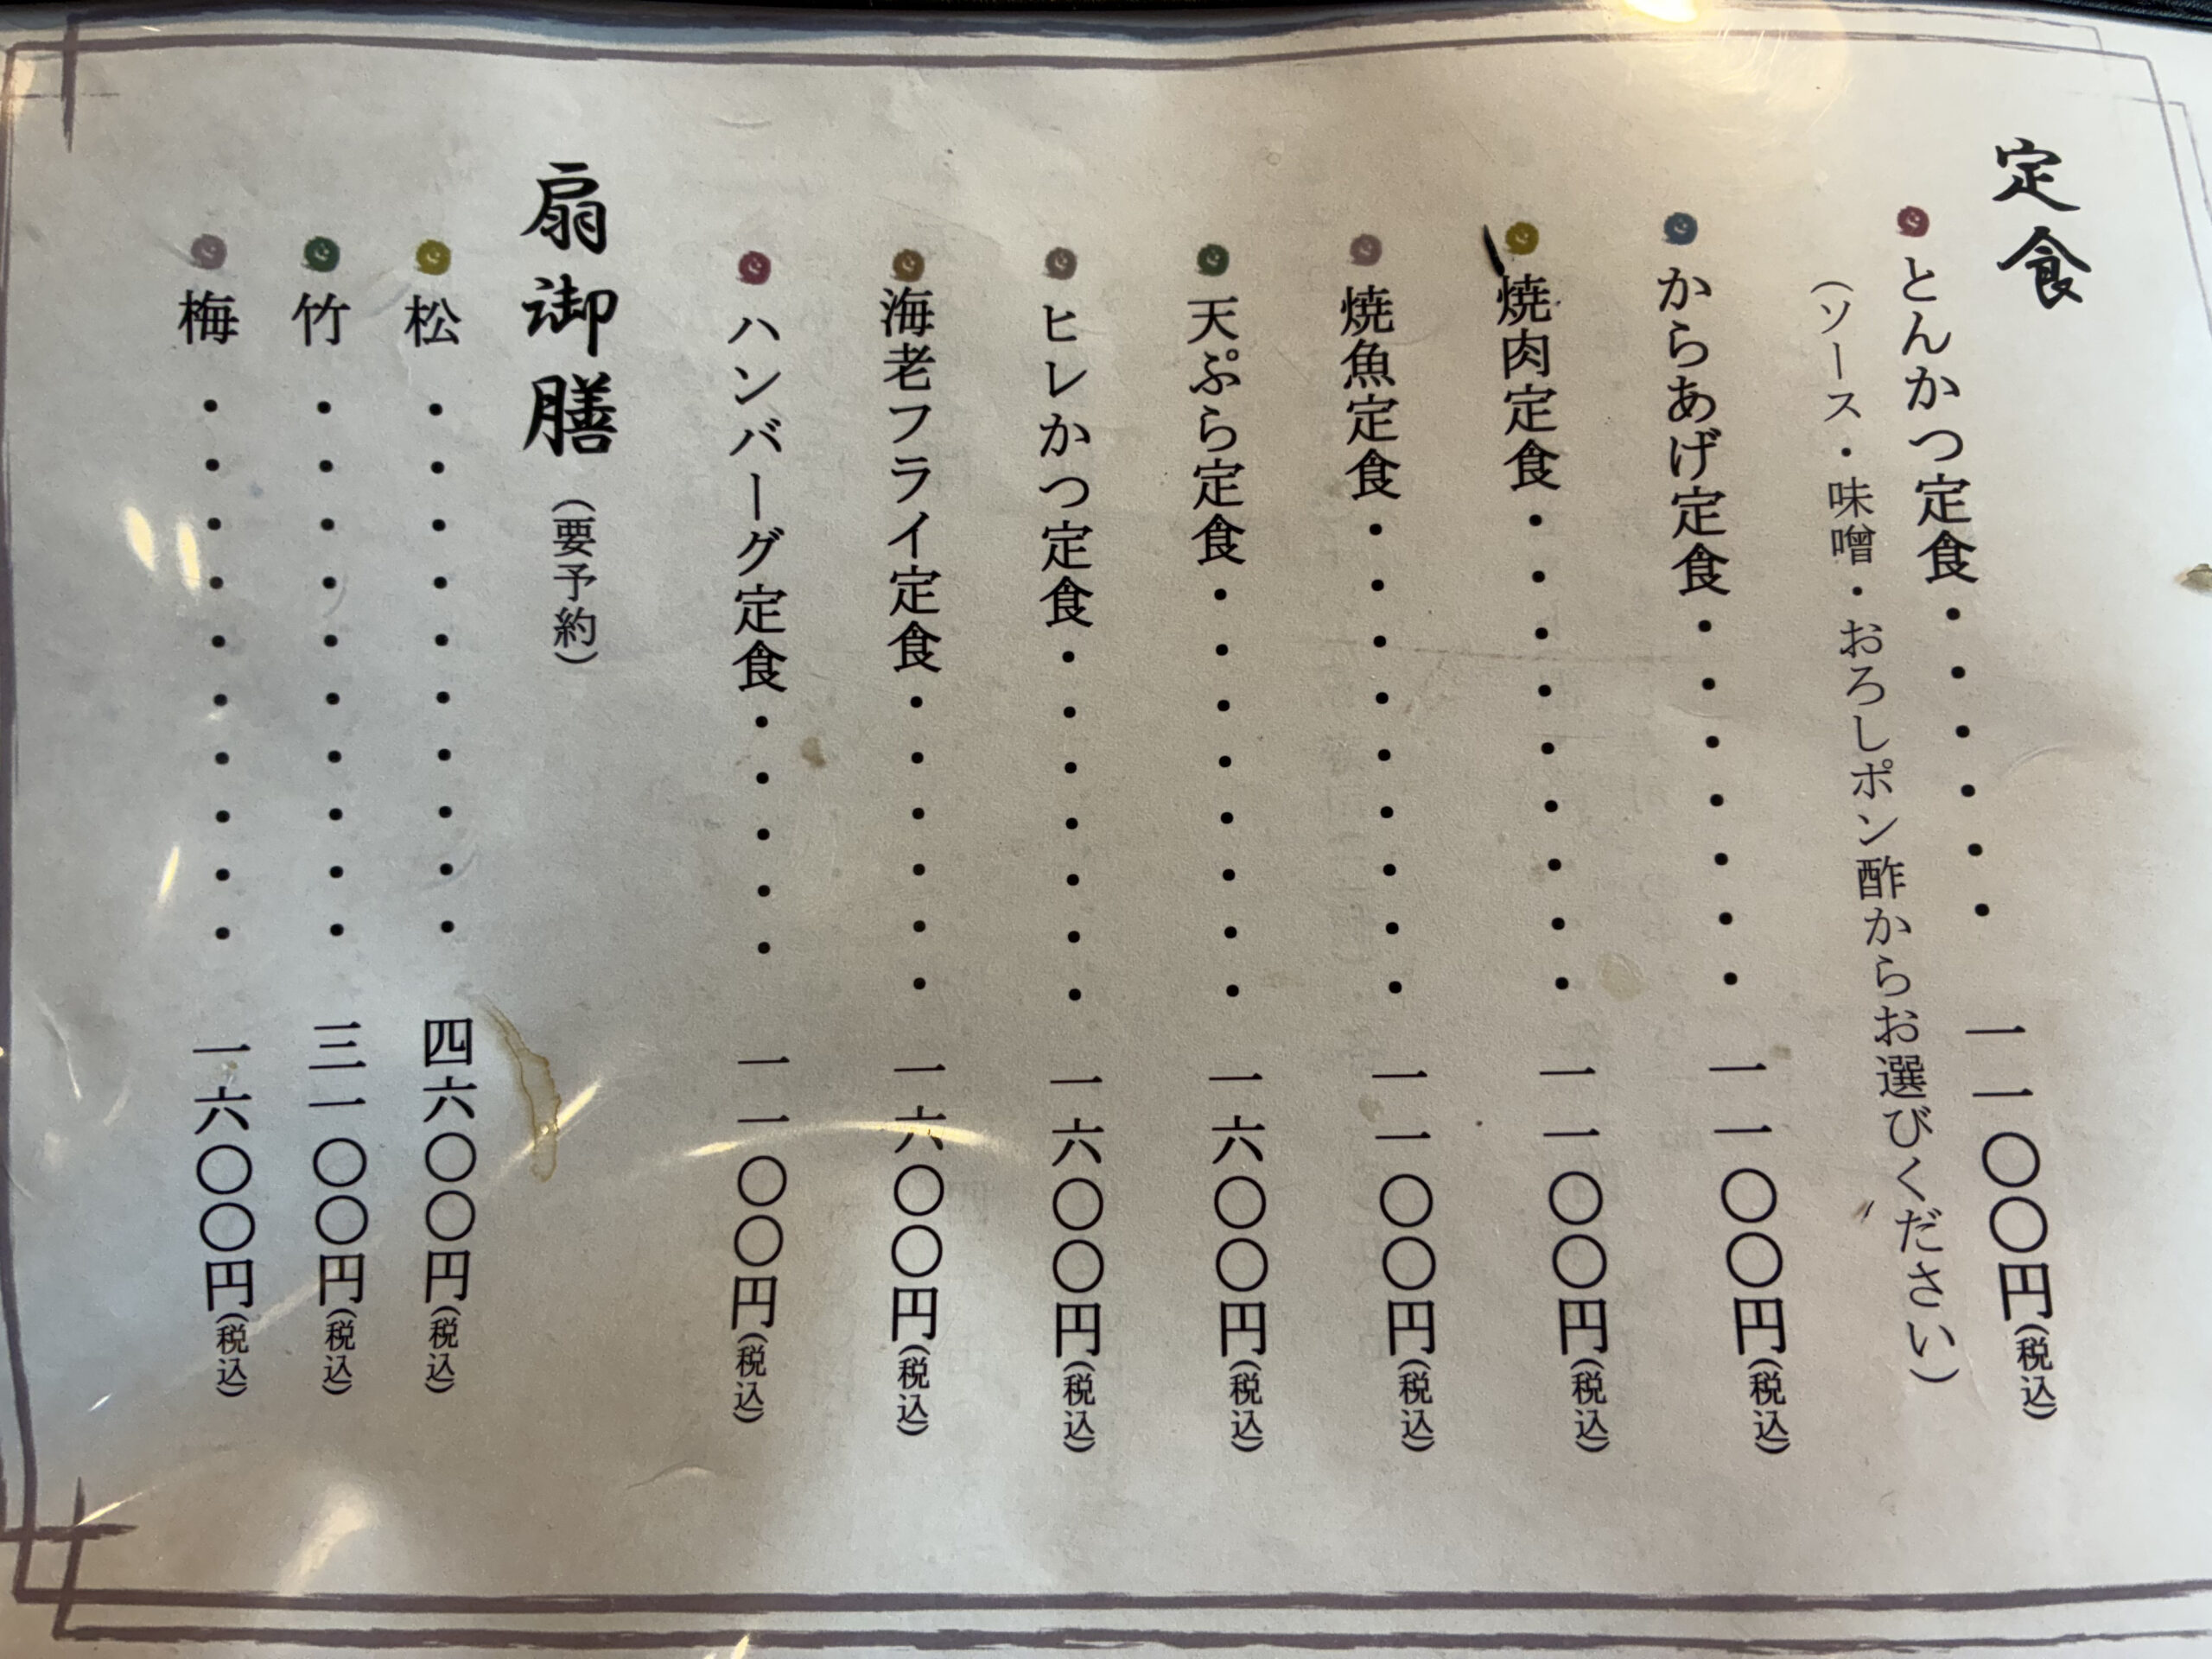 定食
とんかつ定食・・・・・・一一〇〇円(税込)
(ソース・味噌・おろしポン酢からお選びください)
からあげ定食・・・・・・・一一〇〇円(税込)
焼肉定食・・・・・・・・・一一〇〇円(税込)
焼魚定食・・・・・・・・・一一〇〇円(税込)
天ぷら定食・・・・・・・・一六〇〇円(税込)
ヒレかつ定食・・・・・・・一六〇〇円(税込)
海老フライ定食・・・・・・一六〇〇円(税込)
ハンバーグ定食・・・・・一一〇〇円(税込)
扇御膳(要予約)
松・・・・・・・・・・四六〇〇円(税込)
竹・・・・・・・・・・三一〇〇円(税込)
梅・・・・・・・・・・一六〇〇円(税込)